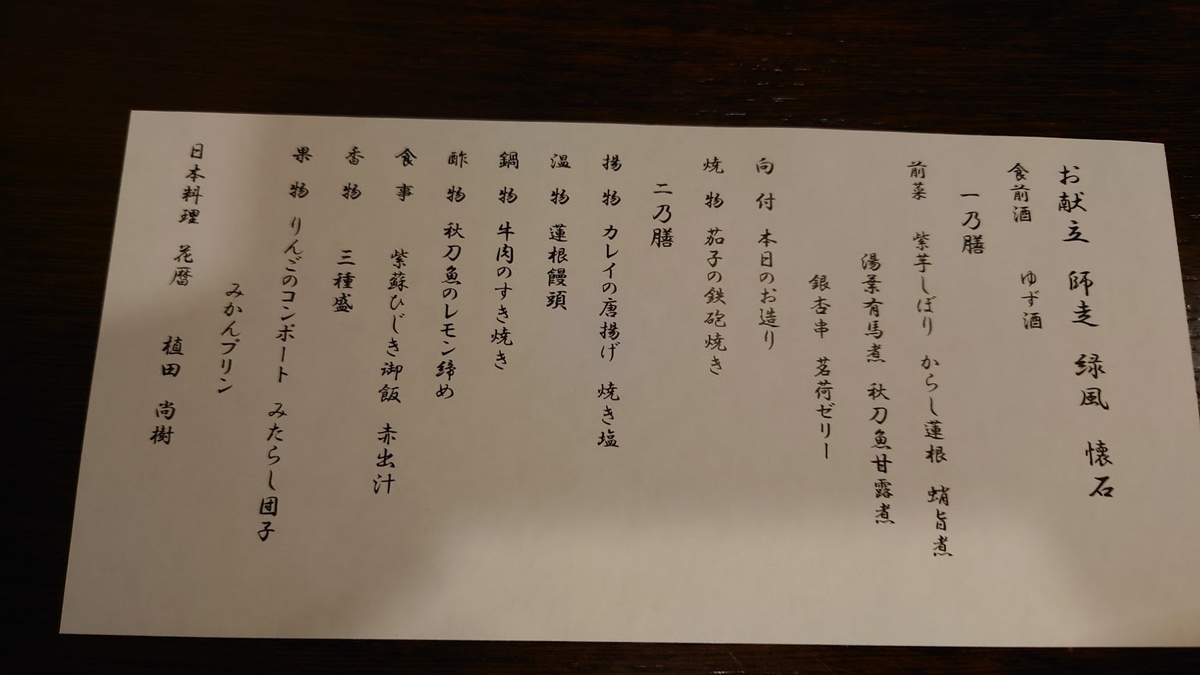 お献立 師走 緑風 懐石
食前酒 ゆず酒
一乃膳
前菜 紫芋しぼり からし蓮根 蛸旨煮
湯葉有馬煮 秋刀魚甘露煮
銀杏串 茗荷ゼリー
向付 本日のお造り
焼物 茄子の鉄砲焼き
二乃膳
揚物 カレイの唐揚げ 焼き塩
温物 蓮根饅頭
鍋物 牛肉のすき焼き
酢物 秋刀魚のレモン締め
食事 紫蘇ひじき御飯 赤出汁
香物 三種盛
果物 りんごのコンポート みたらし団子
みかんプリン
日本料理 花暦 植田 尚樹